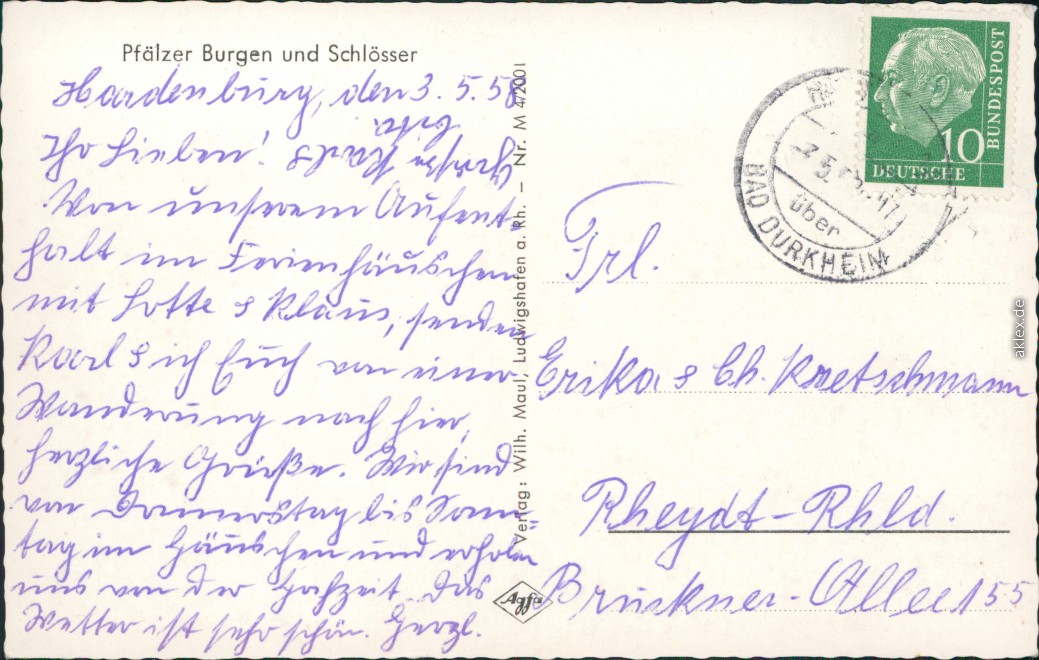 Pfälzer Burgen und Schlösser
Hardenburg, den 3. 5. 58
Ihr Lieben!
Von unserem Aufent
halt im Ferienhäuschen
mit Lotte & Klaus, senden
Karl & ich Euch von einer
Wanderung nach hier,
herzliche Grüße. Wir sind
von Donnerstag bis Sonn=
tag im Häuschen und erholen
uns von der Hochzeit. Das
Wetter ist sehr schön. Herzl.
Verlag: Wilh. Maul, Ludwigshafen a. Rh. – Nr. M 4/2001
Agfa
DEUTSCHE
BUNDESPOST
10
über
BAD DÜRKHEIM
Frl.
Erika & Ch. Kretschmann
Rheydt-Rhld.
Bruckner-Allee 155
aklex.de